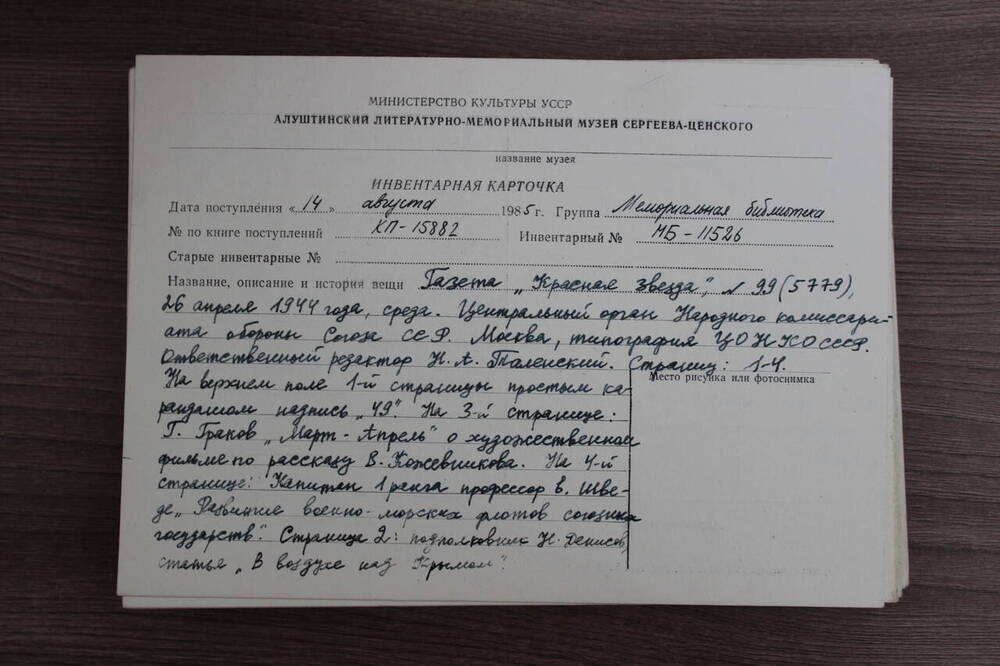 МИНИСТЕРСТВО КУЛЬТУРЫ УССР
АЛУШТИНСКИЙ ЛИТЕРАТУРНО-МЕМОРИАЛЬНЫЙ МУЗЕЙ СЕРГЕЕВА-ЦЕНСКОГО
название музея
ИНВЕНТАРНАЯ КАРТОЧКА
Дата поступления «14» августа 1985 г. Группа Мемориальная библиотека
№ по книге поступлений КП-15882 Инвентарный № МБ-11526
Старые инвентарные №
Название, описание и история вещи Газета „Красная звезда", № 99(5779),
26 апреля 1944 года, среда. Центральный орган Народного комиссари-
ата обороны Союза ССР. Москва, типография ЦО НКО СССР.
Ответственный редактор Н. А. Таленский. Страниц: 1-4.
Место рисунка или фотоснимка
На верхнем поле 1-й страницы простым ка-
рандашом надпись „49". На 3-й странице:
Г. Граков „Март-Апрель" о художественном
фильме по рассказу В. Кожевникова. На 4-й
странице: Капитан 1 ранга профессор Е. Шве-
де „Развитие военно-морских флотов союзных
государств". Страница 2: подполковник Н. Денисов,
статья „В воздухе над Крымом".